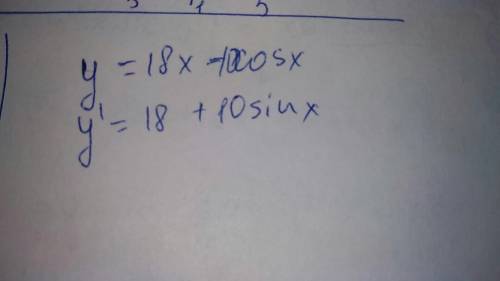 y = 18x - 10cosx
y' = 18 + 10sinx